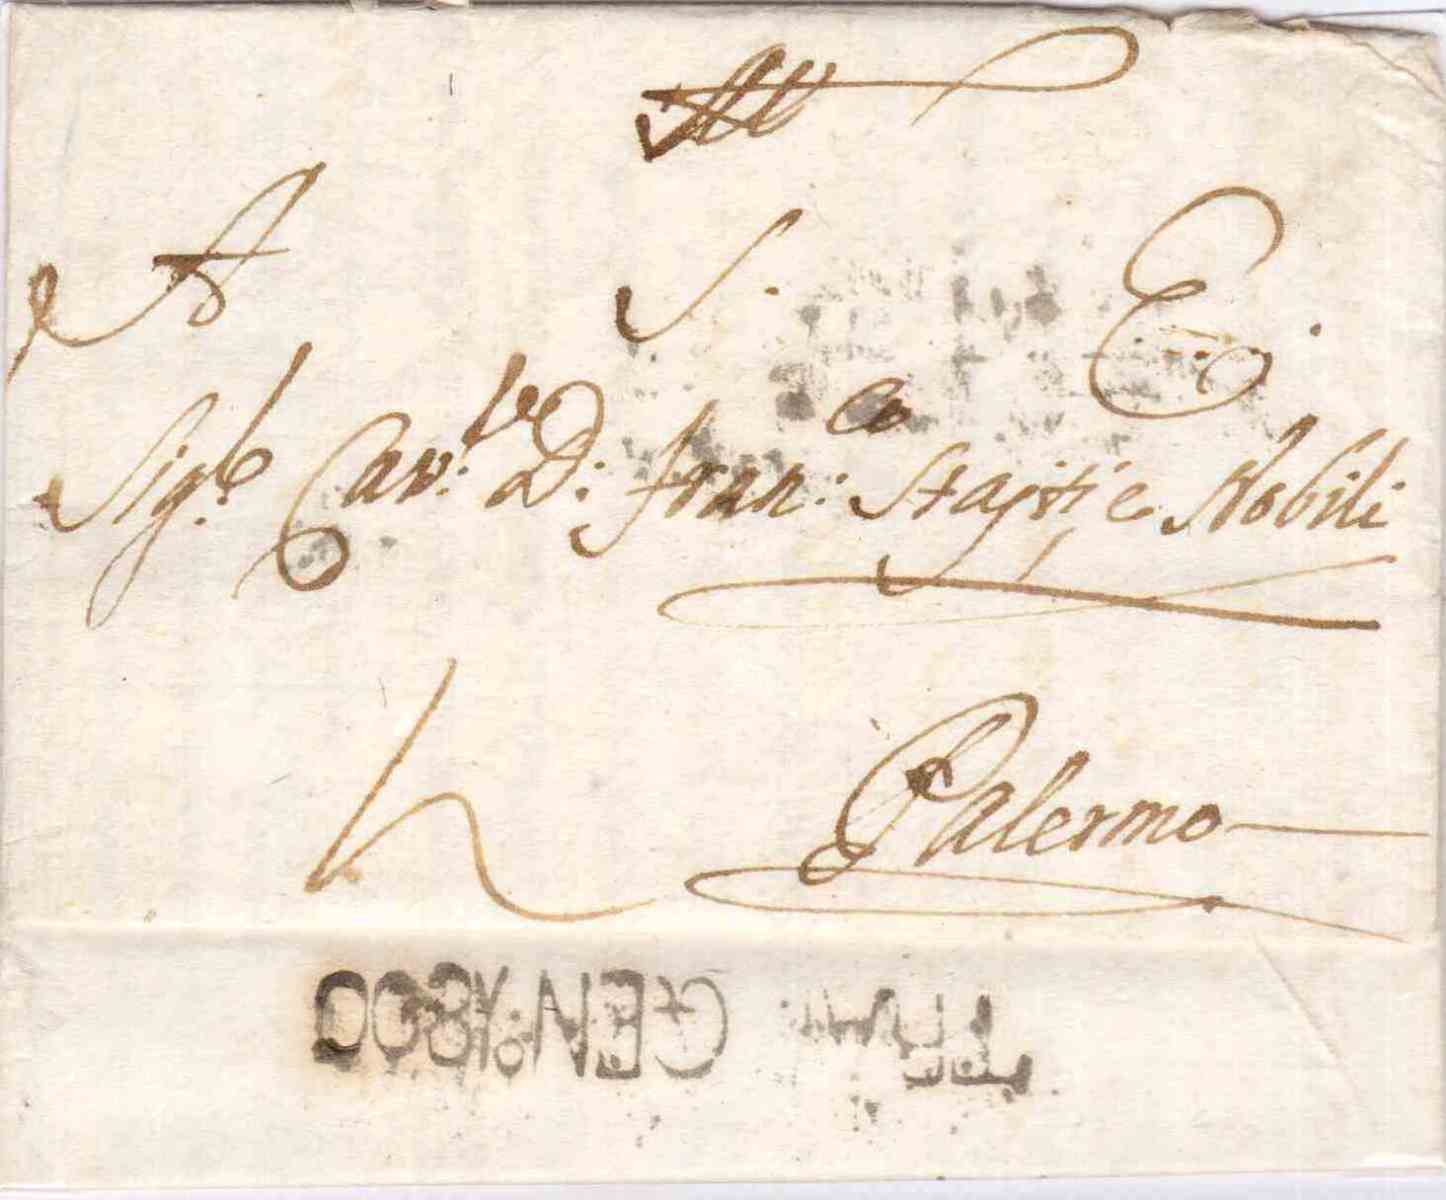 A S. E.
Sig.r Cav.re D. Fran.co Stajti e Nobili
Palermo
GEN. 1800